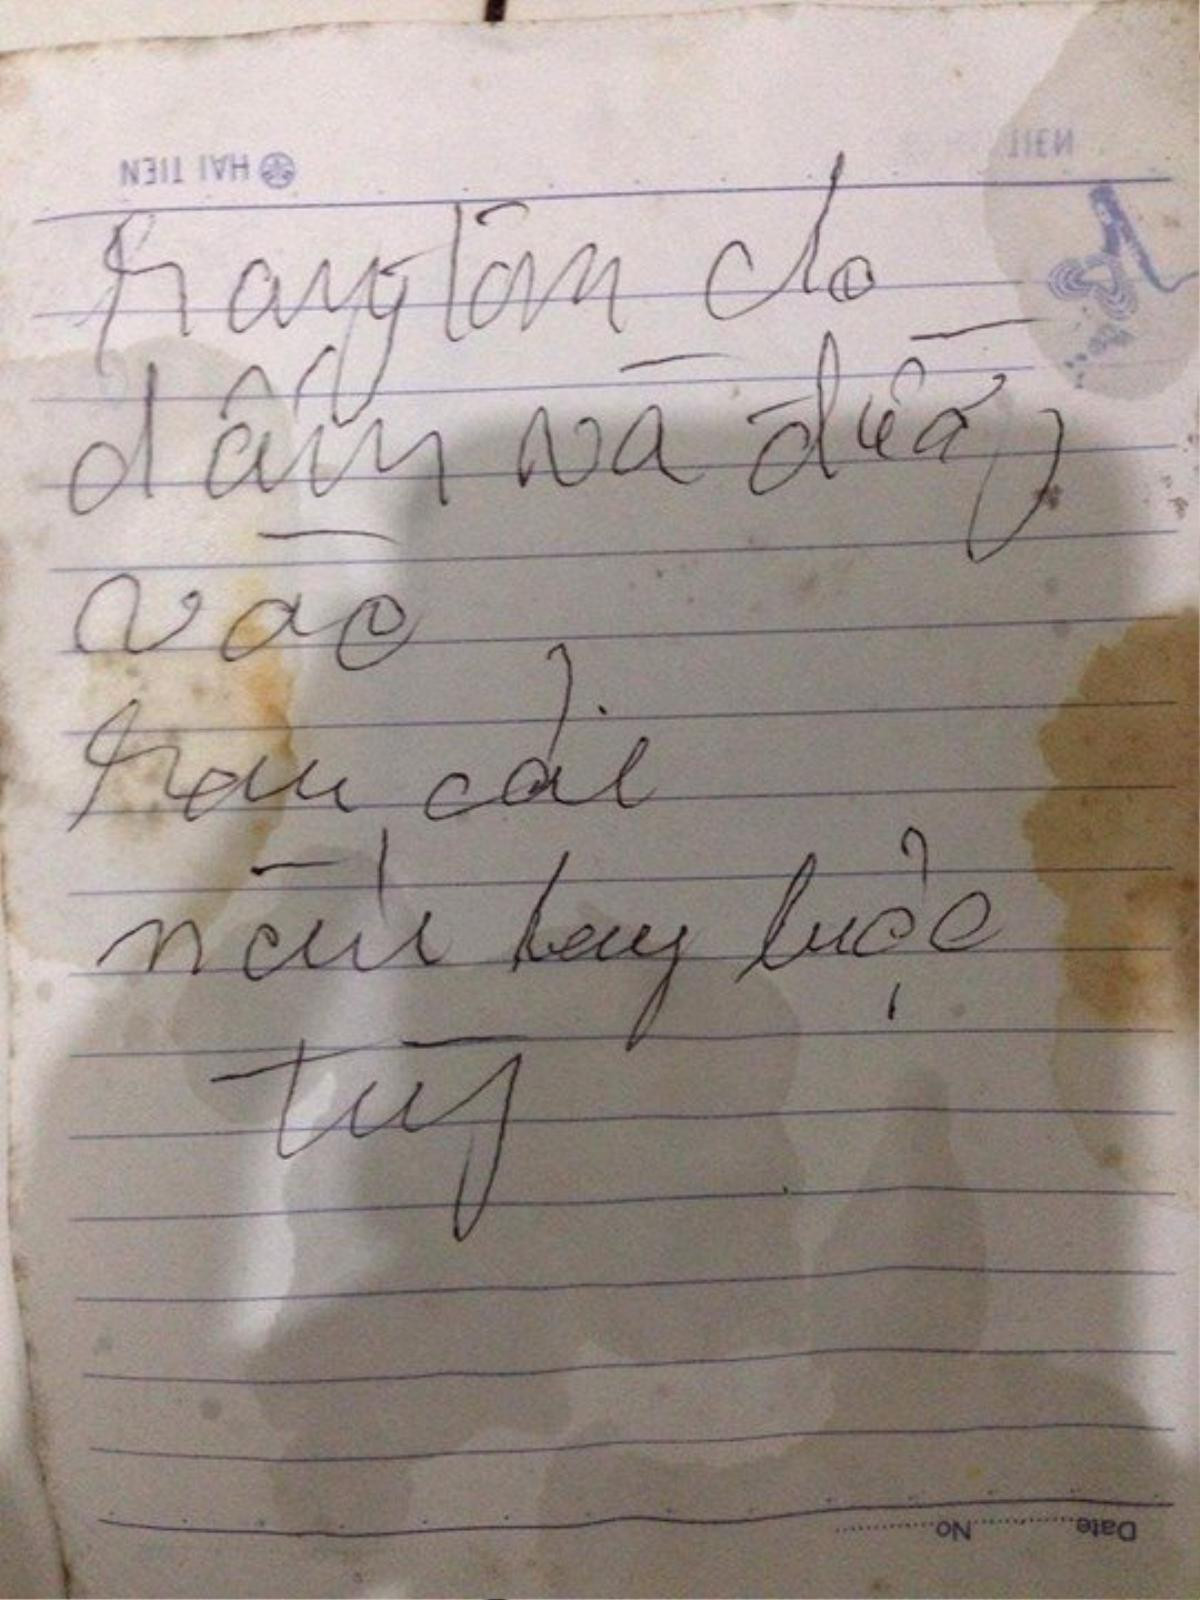 HAI TIEN
TIEN
rang tôm cho
dấm và đường
vào
rau cải
nấu hay luộc
tùy
Date No